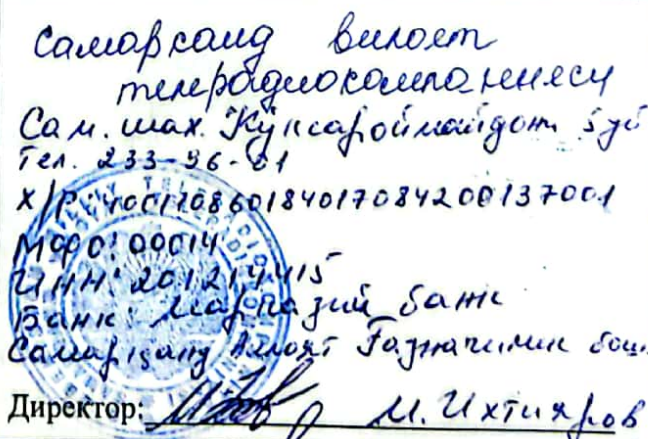 Самарқанд вилоят
телерадиокомпанияси
Сам. шах. Кўксароймайдони 5 уй
Тел. 233-96-01
х/р: 400110860184017084200137001
МФО: 00014
ИНН: 201214415
Банк: Марказий банк
Самарқанд вилоят Ғазначилик бош.
Директор: М. Ихтияров